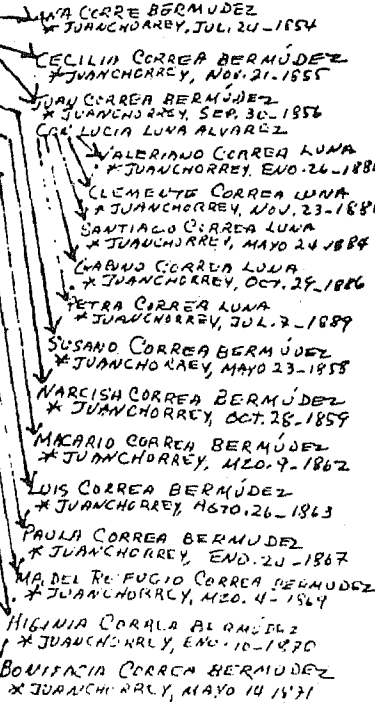 CORREA BERMUDEZ
* JUANCHORREY, JUL. 24-1854
CECILIA CORREA BERMÚDEZ
* JUANCHORREY, NOV. 21-1855
JUAN CORREA BERMÚDEZ
* JUANCHORREY, SEP. 30-1856
CON LUCIA LUNA ALVAREZ
VALERIANO CORREA LUNA
* JUANCHORREY, ENO. 26-188
CLEMENTE CORREA LUNA
* JUANCHORREY, NOV. 23-188
SANTIAGO CORREA LUNA
* JUANCHORREY, MAYO 24-1884
GABINO CORREA LUNA
* JUANCHORREY, OCT. 29-1886
PETRA CORREA LUNA
* JUANCHORREY, JUL. 7-1889
SUSANO CORREA BERMÚDEZ
* JUANCHORREY, MAYO 23-1858
NARCISA CORREA BERMÚDEZ
* JUANCHORREY, OCT. 28-1859
MACARIO CORREA BERMÚDEZ
* JUANCHORREY, MZO. 9-1862
LUIS CORREA BERMÚDEZ
* JUANCHORREY, AGTO. 26-1863
PAULA CORREA BERMUDEZ
* JUANCHORREY, ENO. 20-1867
MA. DEL REFUGIO CORREA BERMUDEZ
* JUANCHORREY, MZO. 4-1869
HIGINIA CORREA BERMÚDEZ
* JUANCHORREY, ENO. 10-1870
BONIFACIA CORREA BERMUDEZ
* JUANCHORREY, MAYO 14 1871